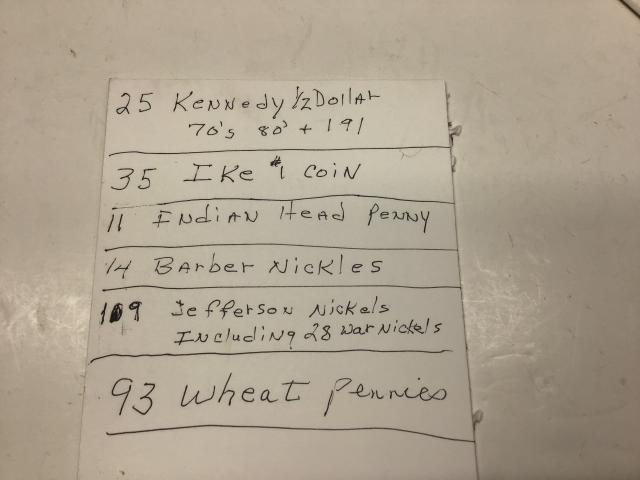 25 Kennedy 1/2 Dollar
70's 80' + 1 91
35 Ike #1 coin
11 Indian Head Penny
14 Barber Nickles
109 Jefferson Nickels
Including 28 war Nickels
93 Wheat Pennies